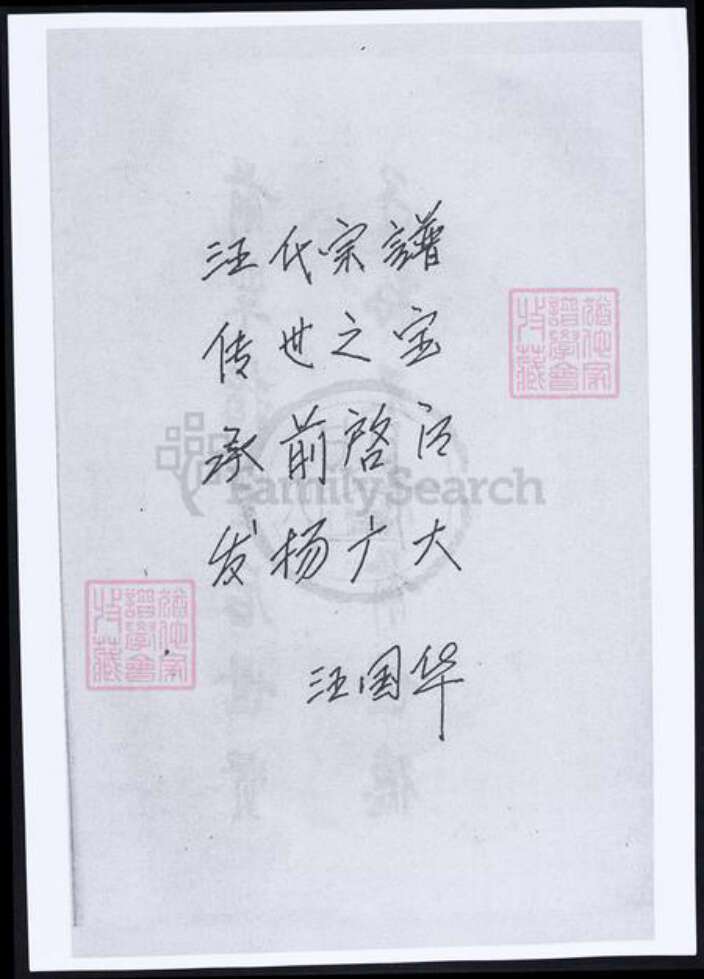 汪代宗譜
传世之宝
承前啓后
发扬广大
汪国华
FamilySearch
猶他家
譜學會
收藏
猶他家
譜學會
收藏